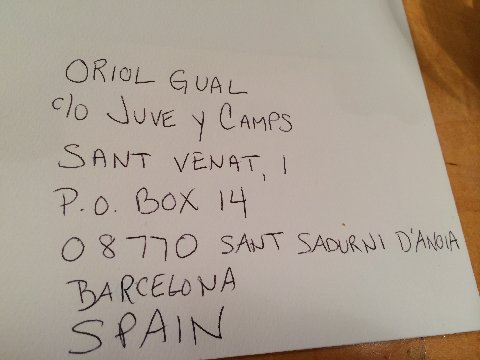 ORIOL GUAL
c/o JUVE Y CAMPS
SANT VENAT, 1
P.O. BOX 14
08770 SANT SADURNI D'ANOIA
BARCELONA
SPAIN